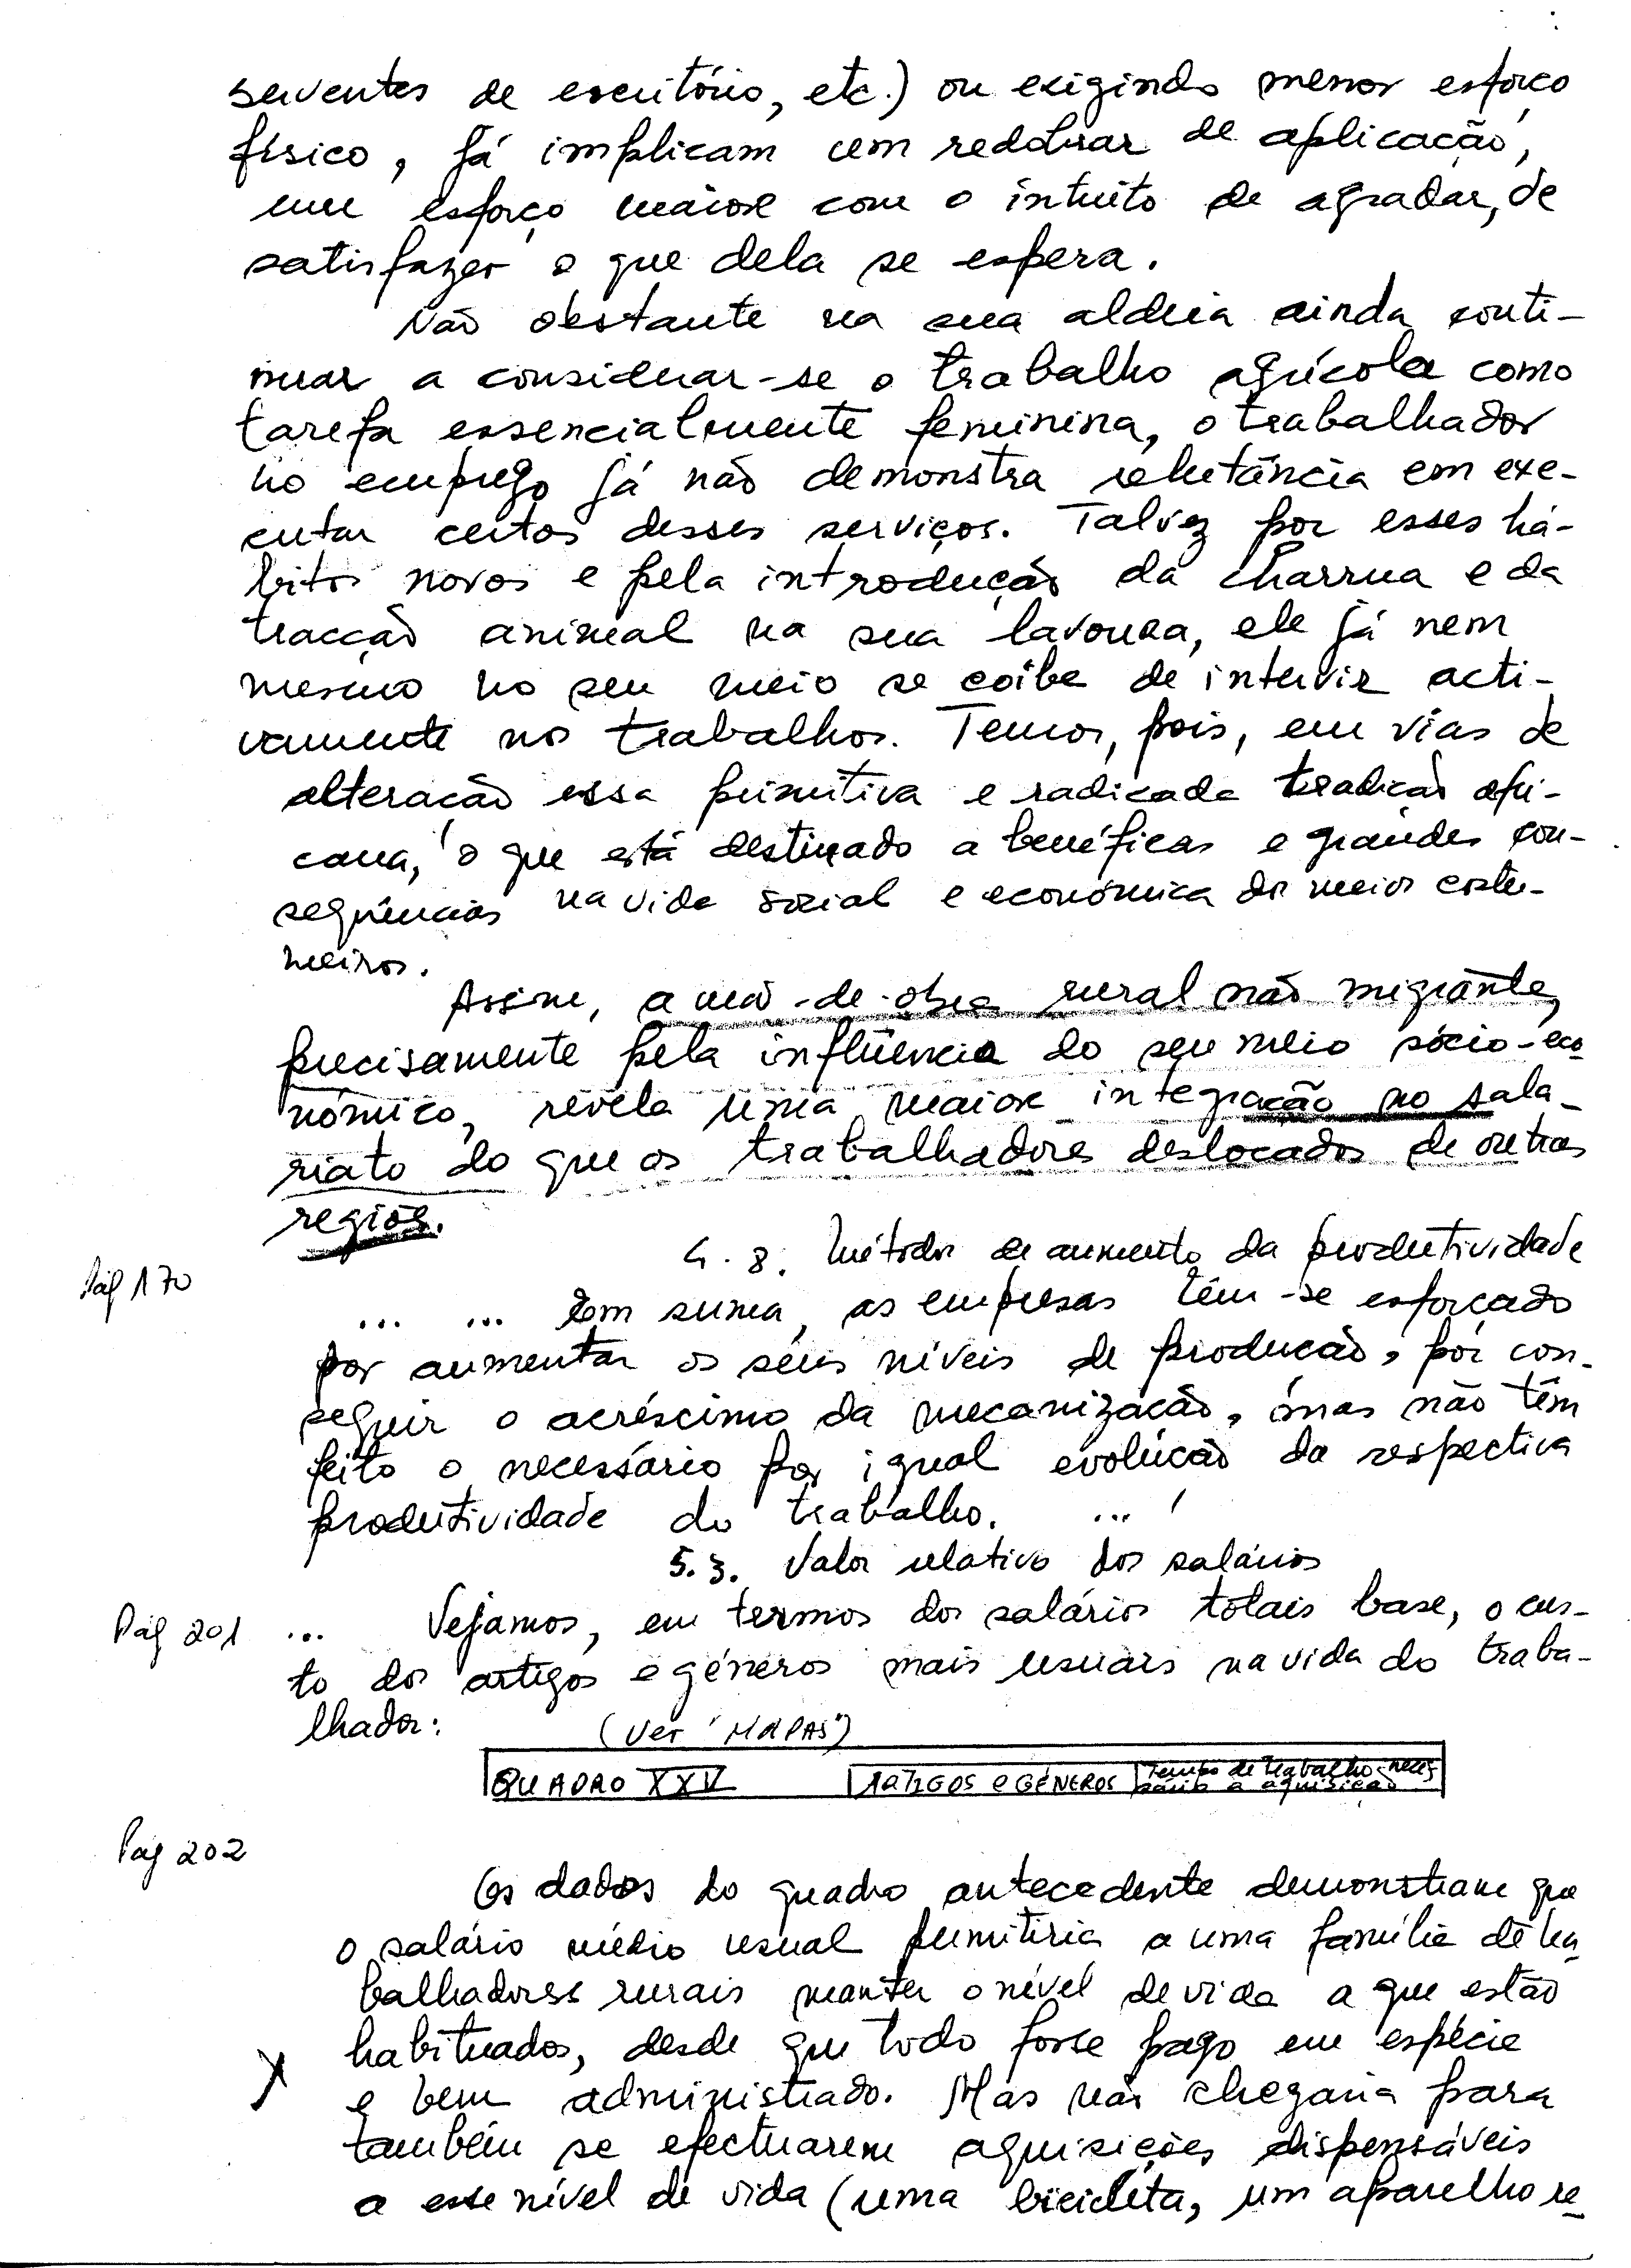 serventes de escritório, etc.) ou exigindo menor esforço
físico, já implicam um redobrar de aplicação,
um esforço maior com o intuito de agradar, de
satisfazer o que dela se espera.
Não obstante na sua aldeia ainda conti-
nuar a considerar-se o trabalho agrícola como
tarefa essencialmente feminina, o trabalhador
no emprego já não demonstra relutância em exe-
cutar certos desses serviços. Talvez por esses há-
bitos novos e pela introdução da charrua e da
tracção animal na sua lavoura, ele já nem
mesmo no seu meio se coibe de intervir acti-
vamente nos trabalhos. Temos, pois, em vias de
alteração essa primitiva e radicada tradição afri-
cana, o que está destinado a benéficas e grandes con-
seqüências na vida social e económica do meio costu-
meiros.
Assim, a mão-de-obra rural não migrante,
precisamente pela influência do seu meio sócio-eco
nómico, revela uma maior integração no sala-
riato do que os trabalhadores deslocados de outras
regiões.
4.8. Métodos de aumento da produtividade
Pág 170
... ... Em suma, as empresas têm-se esforçado
por aumentar os seus níveis de produção, por con-
seguir o acréscimo da mecanização, mas não têm
feito o necessário por igual evolução da respectiva
produtividade do trabalho. ...
5.3. Valor relativo dos salários
Pág 201 ... Vejamos, em termos dos salários totais base, o cus-
to dos artigos e géneros mais usuais na vida do traba-
lhador: (Ver "MAPAS")
QUADRO XXV ARTIGOS e GÉNEROS Tempo de trabalho neces
sário à aquisição
Pág 202
Os dados do quadro antecedente demonstram que
o salário médio usual permitiria a uma família de tra
balhadores rurais manter o nível de vida a que estão
habituados, desde que todo fosse pago em espécie
X e bem administrado. Mas não chegaria para
também se efectuarem aquisições dispensáveis
a esse nível de vida (uma bicicleta, um aparelho re